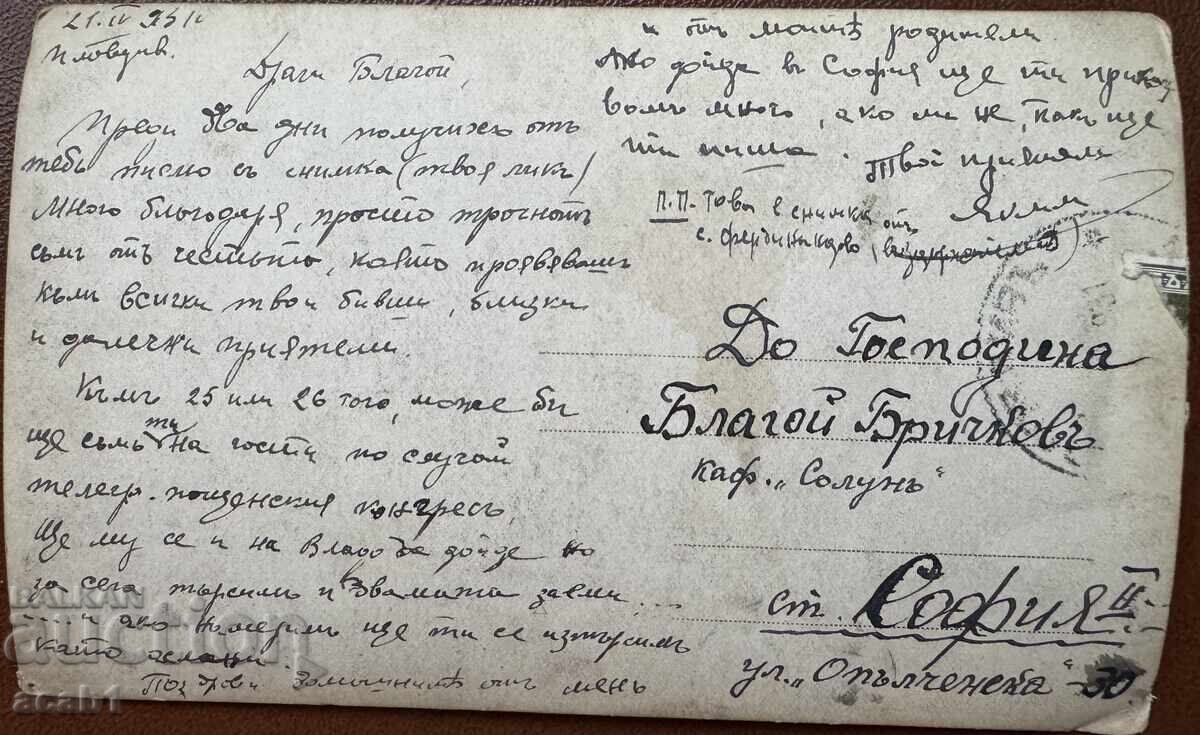 21.IV 931
Пловдив.
Драги Благой,
Преди два дни получихъ отъ
тебъ писмо съ снимка (твоя ликъ)
много благодаря, просто трогнатъ
съмъ отъ честьта, която проявявашъ
към всички твои бивши, близки
и далечни приятели.
Къмъ 25 или 26 того, може би
ще съмъ ти на гости по случай
телегр. пощенския конгресъ.
Ще му се и на Владо да дойде но
за сега търсимъ и двамата заеми ...
..... и ако намеримъ ще ти се изтърсимъ
като
Поздрави домашните отъ менъ
и отъ моитѣ родители.
Ако дойда въ София ще ти
много, ако ли не, пакъ ще
ти пиша.
Твой приятель
П.П. Това е снимка отъ
с. Фердинандово,
До Господина
Благой Бричковъ
каф. „Солунъ"
ст. София II
ул. „Опълченска" 30
BALKAN
auction
acab1